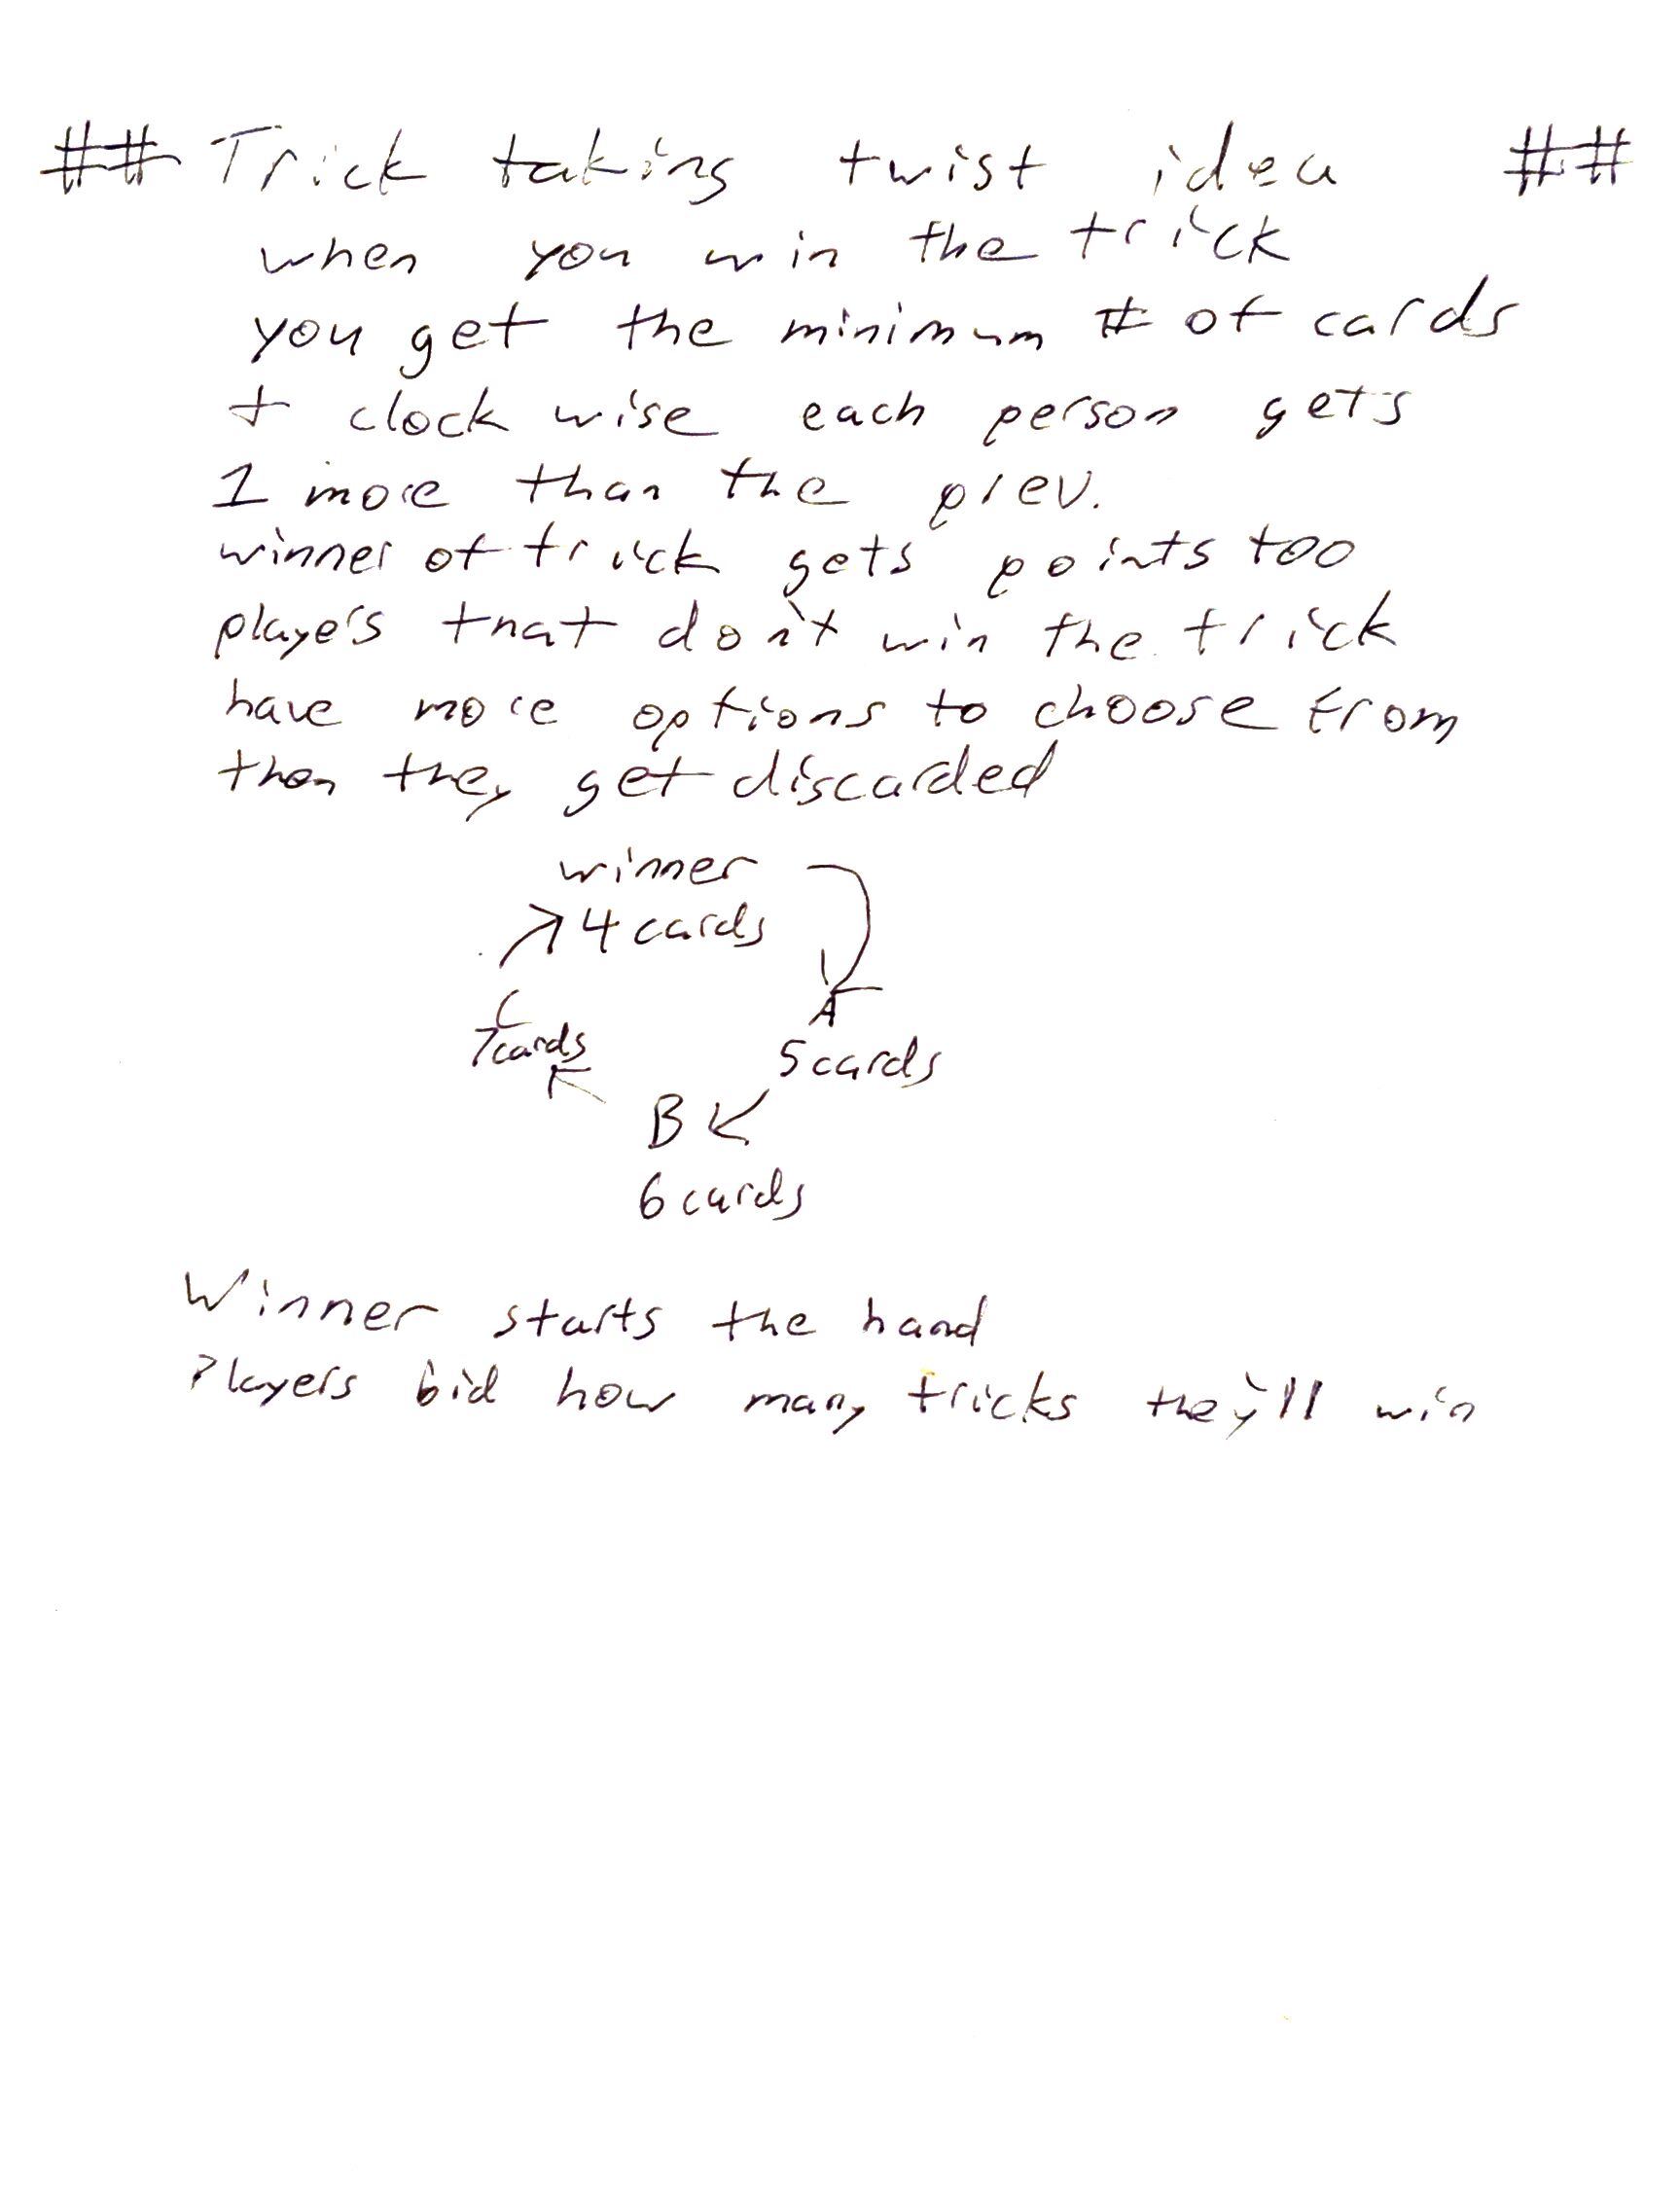 ## Trick taking twist idea ##
when you win the trick
you get the minimum # of cards
+ clock wise each person gets
1 more than the prev.
winner of trick gets points too
players that don't win the trick
have more options to choose from
then they get discarded
winner
4 cards
A
5 cards
B
6 cards
C
7 cards
Winner starts the hand
Players bid how many tricks they'll win